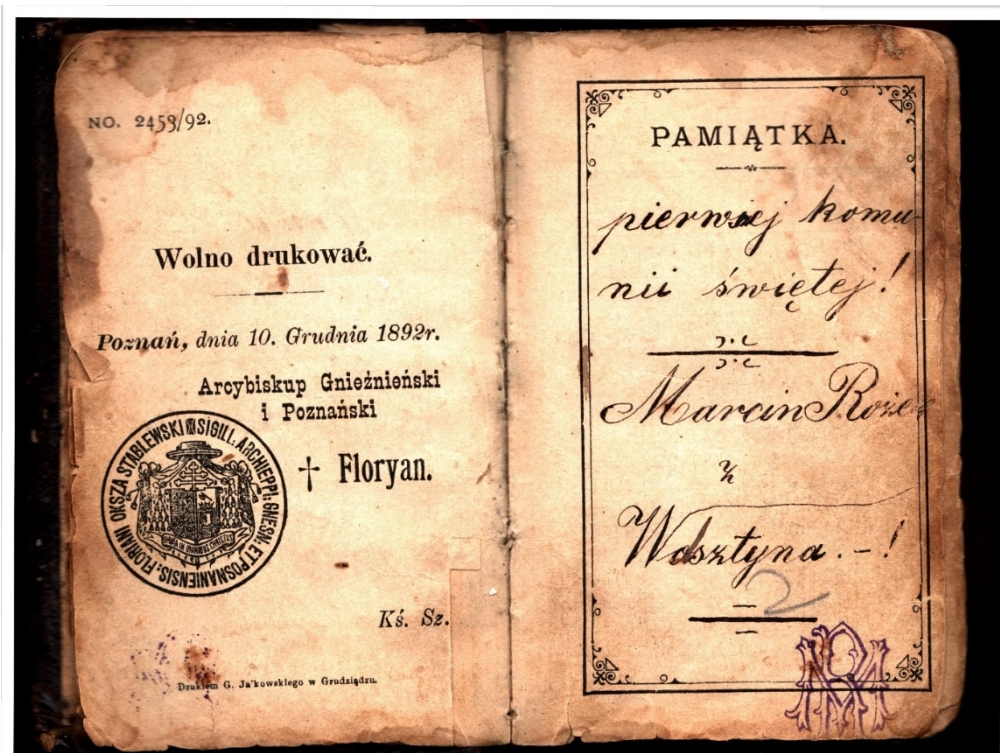 NO. 2453/92.
Wolno drukować.
Poznań, dnia 10. Grudnia 1892r.
Arcybiskup Gnieźnieński
i Poznański
† Floryan.
FLORIANI OKSZA STABLEWSKI SIGILL. ARCHIEPPI: GNESN. ET POSNANIENSIS.
Kś. Sz.
Drukiem G. Jalkowskiego w Grudziądzu.
PAMIĄTKA.
pierwszej komu
nii świętej!
Marcin
z
Wolsztyna.-!
2